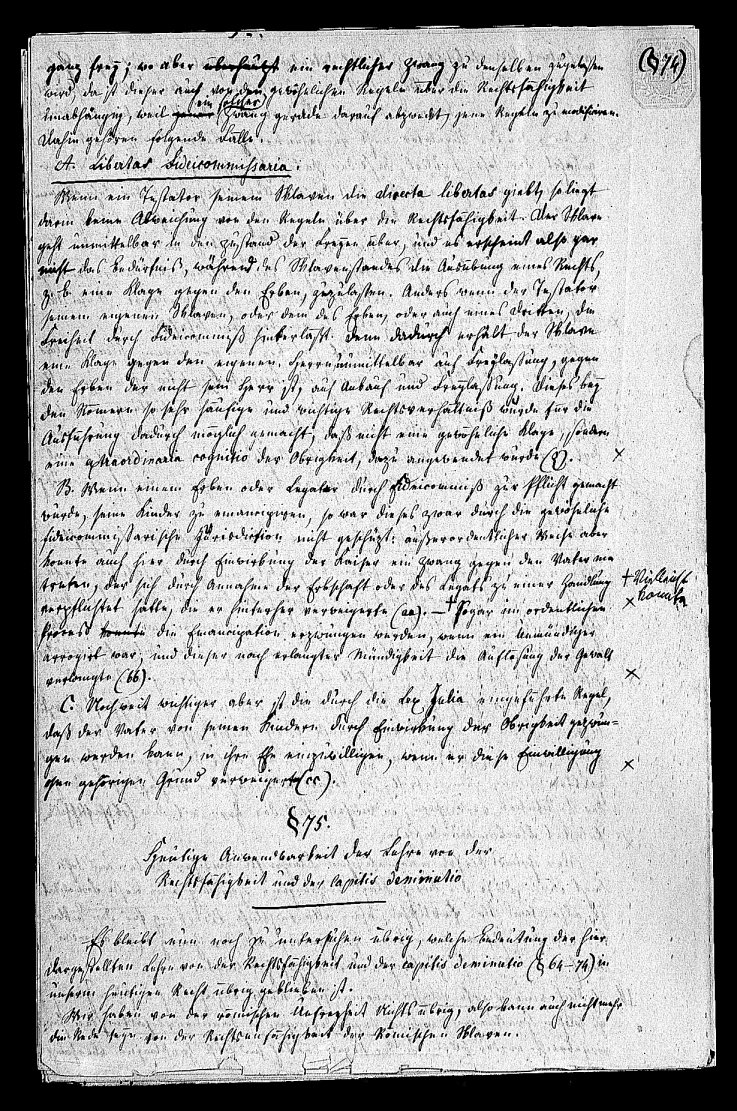 (§74)
ganz frey; wo aber überhaupt ein rechtlicher Zwang zu denselben zugelassen
wird, da ist dieser auch von den gewöhnlichen Regeln über die Rechtsfähigkeit
ein solcher
unabhängig, weil jener Zwang gerade darauf abzweckt, jene Regeln zu modificiren.
Dahin gehören folgende Fälle.
A. Libertas fideicommissaria.
Wenn ein Testator seinem Sklaven die directa libertas giebt, so liegt
darin keine Abweichung von den Regeln über die Rechtsfähigkeit. Der Sklave
geht unmittelbar in den Zustand der Freyen über, und es erscheint also gar
nicht das Bedürfniß, während des Sklavenstandes die Ausübung eines Rechts,
z. B. eine Klage gegen den Erben, zuzulassen. Anders wenn der Testator
seinem eigenen Sklaven, oder dem des Erben, oder auch eines Dritten, die
Freiheit durch Fideicommiß hinterläßt. Denn dadurch erhält der Sklave
eine Klage gegen den eigenen Herrn unmittelbar auf Freylassung, gegen
den Erben der nicht sein Herr ist, auf Ankauf und Freylassung. Dieses bey
den Römern so sehr häufige und wichtige Rechtsverhältniß wurde für die
Ausführung dadurch möglich gemacht, daß nicht eine gewöhnliche Klage, sondern
eine extraordinaria cognitio der Obrigkeit, dazu angewendet wurde (z). ×
B. Wenn einem Erben oder Legatar durch Fideicommiß zur Pflicht gemacht
wurde, seine Kinder zu emancipiren, so war dieses zwar durch die gewöhnliche
fideicommissarische Jurisdiction nicht geschützt: außerordentlicher Weise aber
konnte auch hier durch Einwirkung der Kaiser ein Zwang gegen den Vater ein
treten, der sich durch Annahme der Erbschaft oder des Legats zu einer Handlung
+ Vielleicht
konnte
verpflichtet hatte, die er hinterher verweigerte (aa). — + Sogar im ordentlichen ×
Prozeß konnte die Emancipation erzwungen werden, wenn ein Unmündiger
arrogirt war, und dieser nach erlangter Mündigkeit die Auflösung der Gewalt
verlangte (bb). ×
C. Noch weit wichtiger aber ist die durch die Lex Julia eingeführte Regel,
daß der Vater von seinen Kindern durch Einwirkung der Obrigkeit gezwun-
gen werden kann, in ihre Ehe einzuwilligen, wenn er diese Einwilligung
ohne gehörigen Grund verweigerte (cc). ×
§75.
Heutige Anwendbarkeit der Lehre von der
Rechtsfähigkeit und der capitis deminutio
Es bleibt nun noch zu untersuchen übrig, welche Bedeutung der hier
dargestellten Lehre von der Rechtsfähigkeit und der capitis deminutio (§64–74) in
unserm heutigen Recht übrig geblieben ist.
Wir haben von der römischen Unfreiheit Nichts übrig, also kann auch nicht mehr
die Rede seyn von der Rechtsunfähigkeit der Römischen Sklaven.